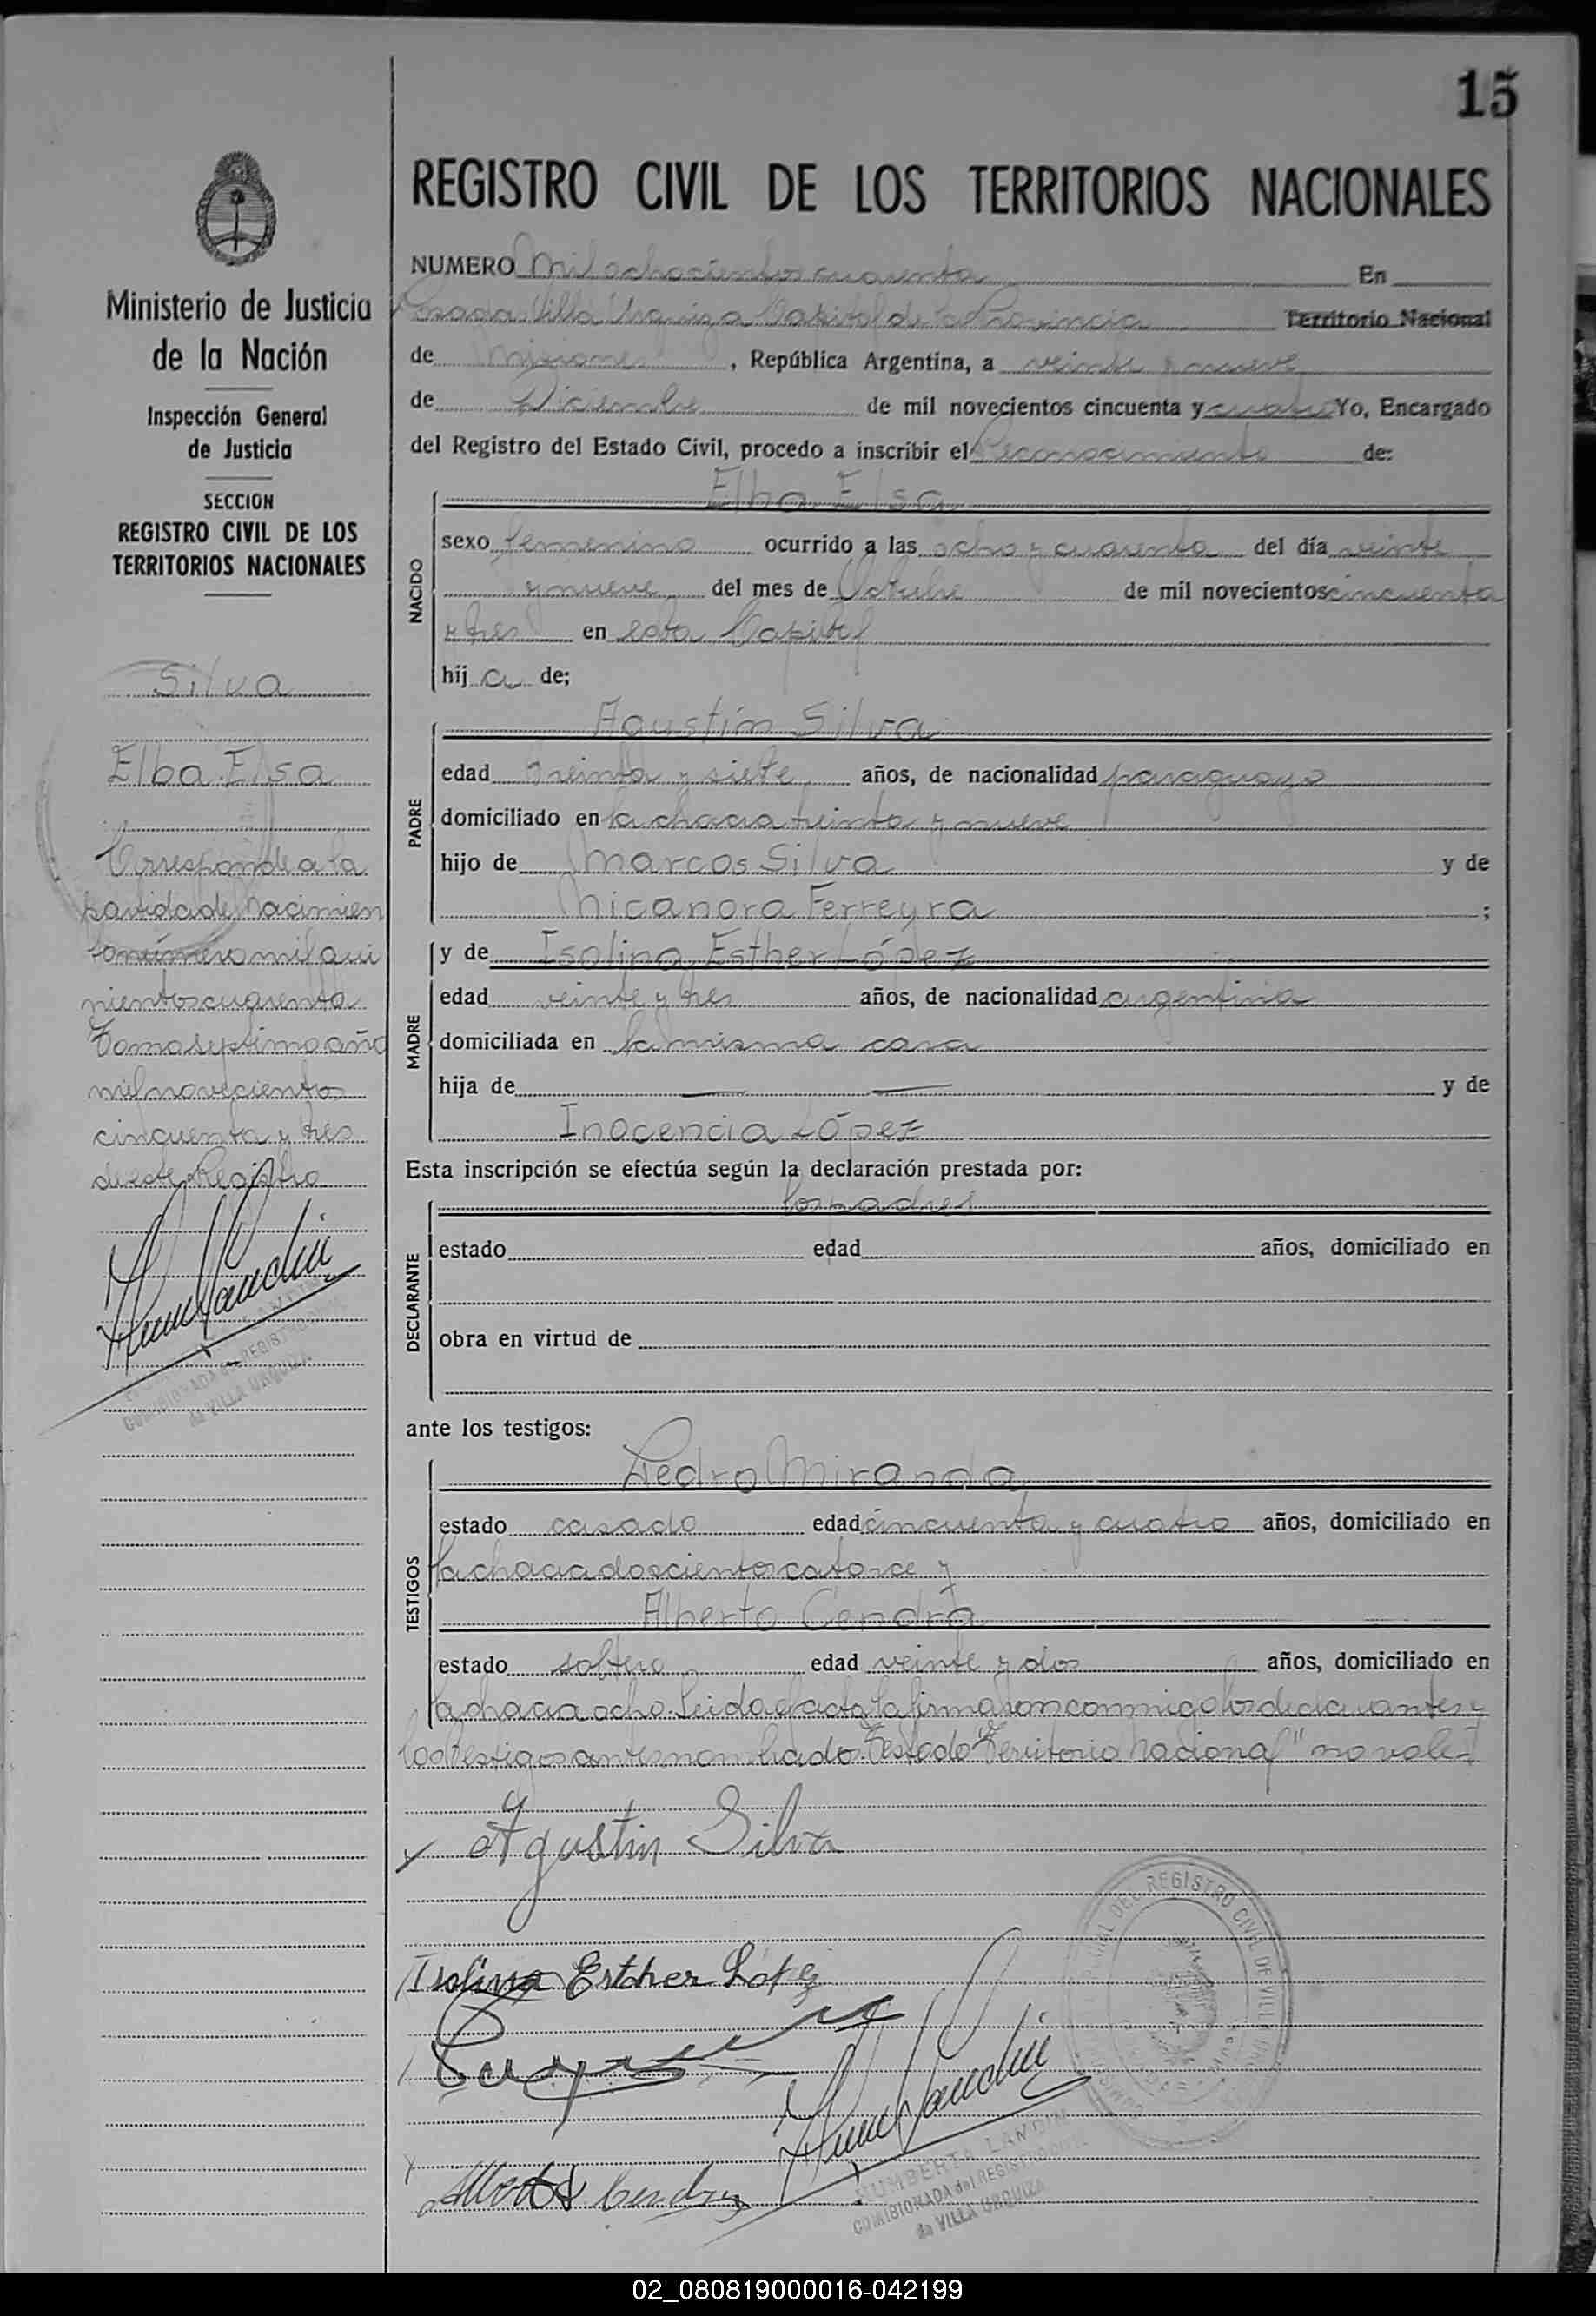 15
REGISTRO CIVIL DE LOS TERRITORIOS NACIONALES
Ministerio de Justicia
de la Nación
Inspección General
de Justicia
SECCION
REGISTRO CIVIL DE LOS
TERRITORIOS NACIONALES
Silva
Elba Elsa
Corresponde a la
partida de Nacimien
to número mil qui
nientos cuarenta
Tomo septimo año
mil novecientos
cincuenta y tres
de este Registro
COMISIONADA del REGISTRO CIVIL
de VILLA URQUIZA
NUMERO Mil ochocientos cuarenta En
Posadas Villa Urquiza Capital de la Provincia Territorio Nacional
de Misiones, República Argentina, a veinte y nueve
de Diciembre de mil novecientos cincuenta y cuatro Yo, Encargado
del Registro del Estado Civil, procedo a inscribir el Reconocimiento de:
NACIDO
Elba Elsa
sexo femenino ocurrido a las ocho y cuarenta del día veinte
y nueve del mes de Octubre de mil novecientos cincuenta
y tres en esta Capital
hij a de;
PADRE
Agustín Silva
edad treinta y siete años, de nacionalidad paraguaya
domiciliado en la chacra treinta y nueve
hijo de Marcos Silva y de
Nicanora Ferreyra ;
MADRE
y de Isolina Esther López
edad veinte y tres años, de nacionalidad argentina
domiciliada en la misma casa
hija de — — y de
Inocencia López
Esta inscripción se efectúa según la declaración prestada por:
DECLARANTE
los padres
estado edad años, domiciliado en
obra en virtud de
ante los testigos:
TESTIGOS
Pedro Miranda
estado casado edad cincuenta y cuatro años, domiciliado en
la chacra doscientos catorce y
Alberto Cendra
estado soltero edad veinte y dos años, domiciliado en
la chacra ocho. Leida el acta la firmaron conmigo los declarantes y
los testigos antes nombrado. Testado "Territorio Nacional" no vale-
Agustin Silva
Isolina Esther López
Alberto Cendra
HUMBERTA LANDINI
COMISIONADA del REGISTRO CIVIL
de VILLA URQUIZA
DEL REGISTRO CIVIL DE VILLA
02_080819000016-042199